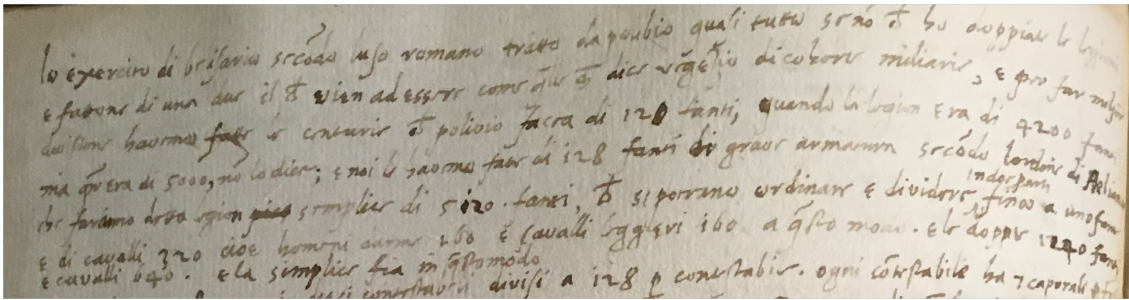 lo exercito di belisario secōdo luso romano tratto da polibio quasi tutto senō ch̄ ho doppiate le legioni
e fattone di una due il ch̄ vien ad essere come q̄lle ch̄ dice vegetio di cohorte miliarie, e per far meglio
divisione havemo fatte le centurie ch̄ polibio facea di 120 fanti, quando la legion era di 4200 fanti
ma q̄n era di 5000, nō lo dice; e noi le havemo fatte di 128 fanti di grave armatura secōdo lordine di Aeliano
che faremo detta legion semplice di 5120 fanti, ch̄ si potranno ordinare e dividere in dor parti fino a uno fante
e di cavalli 320 cioe homeni darme 160 e cavalli leggieri 160 a q̄sto modo. e le doppie fanti
e cavalli 640. e la semplice fia in q̄sto modo
divisi a 128 p conestabile. ogni cōtestabile ha 7 caporali